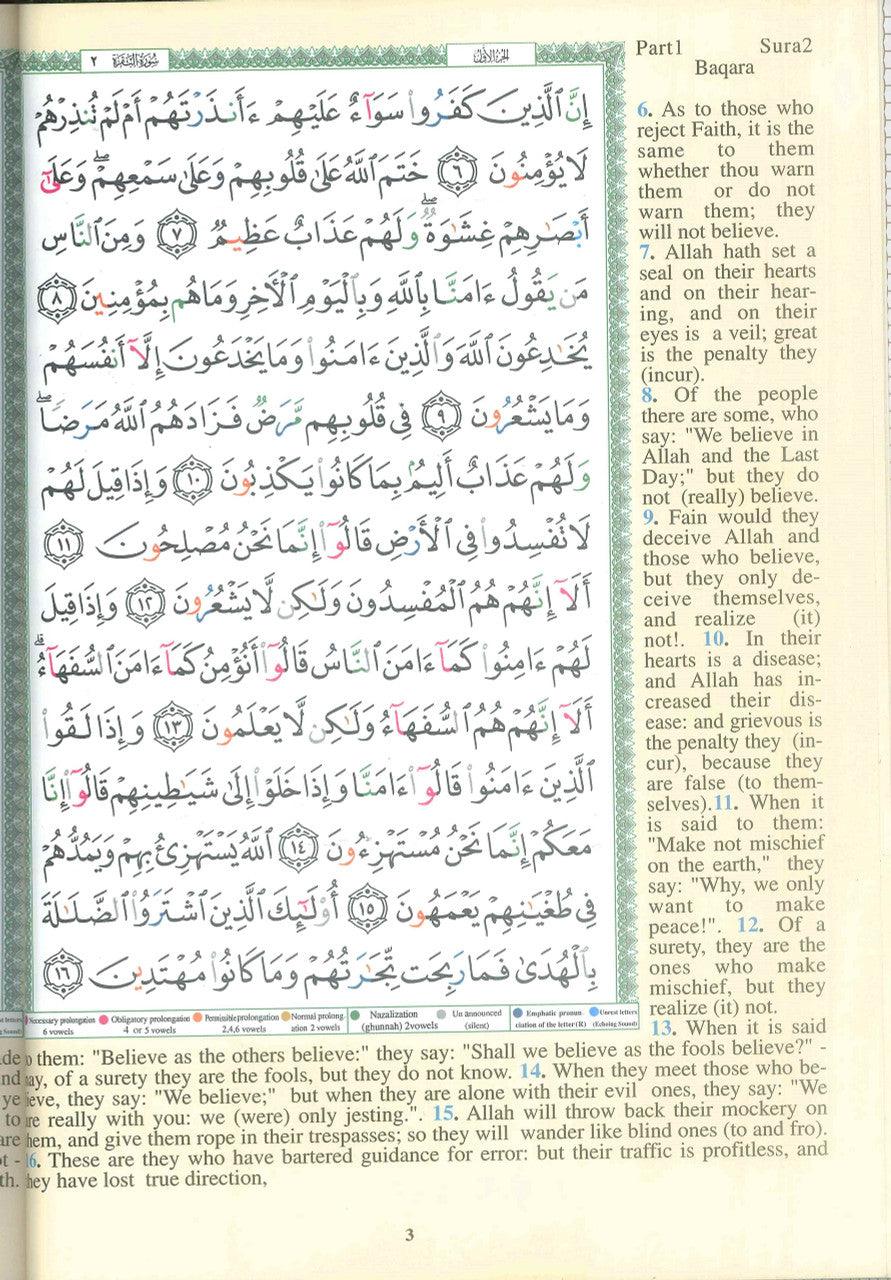 Part1 Sura2
Baqara
سورة البقرة ٢
الجزء الأول
إِنَّ ٱلَّذِينَ كَفَرُوا۟ سَوَآءٌ عَلَيْهِمْ ءَأَنذَرْتَهُمْ أَمْ لَمْ تُنذِرْهُمْ
لَا يُؤْمِنُونَ ٦ خَتَمَ ٱللَّهُ عَلَىٰ قُلُوبِهِمْ وَعَلَىٰ سَمْعِهِمْ ۖ وَعَلَىٰٓ
أَبْصَـٰرِهِمْ غِشَـٰوَةٌ ۖ وَلَهُمْ عَذَابٌ عَظِيمٌ ٧ وَمِنَ ٱلنَّاسِ
مَن يَقُولُ ءَامَنَّا بِٱللَّهِ وَبِٱلْيَوْمِ ٱلْـَٔاخِرِ وَمَا هُم بِمُؤْمِنِينَ ٨
يُخَـٰدِعُونَ ٱللَّهَ وَٱلَّذِينَ ءَامَنُوا۟ وَمَا يَخْدَعُونَ إِلَّآ أَنفُسَهُمْ
وَمَا يَشْعُرُونَ ٩ فِى قُلُوبِهِم مَّرَضٌ فَزَادَهُمُ ٱللَّهُ مَرَضًا ۖ
وَلَهُمْ عَذَابٌ أَلِيمٌۢ بِمَا كَانُوا۟ يَكْذِبُونَ ١٠ وَإِذَا قِيلَ لَهُمْ
لَا تُفْسِدُوا۟ فِى ٱلْأَرْضِ قَالُوٓا۟ إِنَّمَا نَحْنُ مُصْلِحُونَ ١١
أَلَآ إِنَّهُمْ هُمُ ٱلْمُفْسِدُونَ وَلَـٰكِن لَّا يَشْعُرُونَ ١٢ وَإِذَا قِيلَ
لَهُمْ ءَامِنُوا۟ كَمَآ ءَامَنَ ٱلنَّاسُ قَالُوٓا۟ أَنُؤْمِنُ كَمَآ ءَامَنَ ٱلسُّفَهَآءُ ۗ
أَلَآ إِنَّهُمْ هُمُ ٱلسُّفَهَآءُ وَلَـٰكِن لَّا يَعْلَمُونَ ١٣ وَإِذَا لَقُوا۟
ٱلَّذِينَ ءَامَنُوا۟ قَالُوٓا۟ ءَامَنَّا وَإِذَا خَلَوْا۟ إِلَىٰ شَيَـٰطِينِهِمْ قَالُوٓا۟ إِنَّا
مَعَكُمْ إِنَّمَا نَحْنُ مُسْتَهْزِءُونَ ١٤ ٱللَّهُ يَسْتَهْزِئُ بِهِمْ وَيَمُدُّهُمْ
فِى طُغْيَـٰنِهِمْ يَعْمَهُونَ ١٥ أُو۟لَـٰٓئِكَ ٱلَّذِينَ ٱشْتَرَوُا۟ ٱلضَّلَـٰلَةَ
بِٱلْهُدَىٰ فَمَا رَبِحَت تِّجَـٰرَتُهُمْ وَمَا كَانُوا۟ مُهْتَدِينَ ١٦
6. As to those who
reject Faith, it is the
same to them
whether thou warn
them or do not
warn them; they
will not believe.
7. Allah hath set a
seal on their hearts
and on their hear-
ing, and on their
eyes is a veil; great
is the penalty they
(incur).
8. Of the people
there are some, who
say: "We believe in
Allah and the Last
Day;" but they do
not (really) believe.
9. Fain would they
deceive Allah and
those who believe,
but they only de-
ceive themselves,
and realize (it)
not!. 10. In their
hearts is a disease;
and Allah has in-
creased their dis-
ease: and grievous is
the penalty they (in-
cur), because they
are false (to them-
selves).11. When it
is said to them:
"Make not mischief
on the earth," they
say: "Why, we only
want to make
peace!". 12. Of a
surety, they are the
ones who make
mischief, but they
realize (it) not.
13. When it is said
Necessary prolongation Obligatory prolongation Permissible prolongation Normal prolong. Nazalization Un announced Emphatic pronun Unrest letters
6 vowels 4 or 5 vowels 2,4,6 vowels ation 2 vowels (ghunnah) 2vowels (silent) ciation of the letter (R) (Echoing Sound)
o them: "Believe as the others believe:" they say: "Shall we believe as the fools believe?" -
ay, of a surety they are the fools, but they do not know. 14. When they meet those who be-
ieve, they say: "We believe;" but when they are alone with their evil ones, they say: "We
re really with you: we (were) only jesting.". 15. Allah will throw back their mockery on
hem, and give them rope in their trespasses; so they will wander like blind ones (to and fro).
6. These are they who have bartered guidance for error: but their traffic is profitless, and
hey have lost true direction,
3